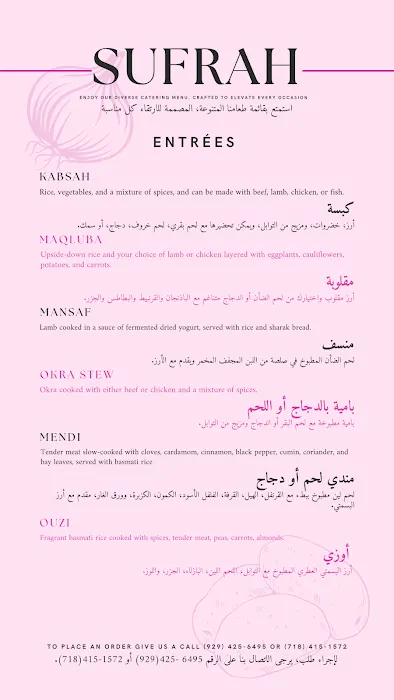 SUFRAH
ENJOY OUR DIVERSE CATERING MENU, CRAFTED TO ELEVATE EVERY OCCASION
استمتع بقائمة طعامنا المتنوعة، المصممة للارتقاء كل مناسبة
ENTRÉES
KABSAH
Rice, vegetables, and a mixture of spices, and can be made with beef, lamb, chicken, or fish.
كبسة
أرز، خضروات، ومزيج من التوابل، ويمكن تحضيرها مع لحم بقري، لحم خروف، دجاج، أو سمك.
MAQLUBA
Upside-down rice and your choice of lamb or chicken layered with eggplants, cauliflowers,
potatoes, and carrots.
مقلوبة
أرز مقلوب واختيارك من لحم الضأن أو الدجاج متناغم مع الباذنجان والقرنبيط والبطاطس والجزر.
MANSAF
Lamb cooked in a sauce of fermented dried yogurt, served with rice and sharak bread.
منسف
لحم الضأن المطبوخ في صلصة من اللبن المجفف المخمر ويقدم مع الأرز.
OKRA STEW
Okra cooked with either beef or chicken and a mixture of spices.
بامية بالدجاج أو اللحم
بامية مطبوخة مع لحم البقر أو الدجاج ومزيج من التوابل.
MENDI
Tender meat slow-cooked with cloves, cardamom, cinnamon, black pepper, cumin, coriander, and
bay leaves, served with basmati rice
مندي لحم أو دجاج
لحم لين مطبوخ ببطء مع القرنفل، الهيل، القرفة، الفلفل الأسود، الكمون، الكزبرة، وورق الغار، مقدم مع أرز
البسمتي.
OUZI
Fragrant basmati rice cooked with spices, tender meat, peas, carrots, almonds.
أوزي
أرز البسمتي العطري المطبوخ مع التوابل، اللحم اللين، البازلاء، الجزر، واللوز.
TO PLACE AN ORDER GIVE US A CALL (929) 425-6495 OR (718) 415-1572
لإجراء طلب، يرجى الاتصال بنا على الرقم 6495 -425(929) أو 1572-415(718).